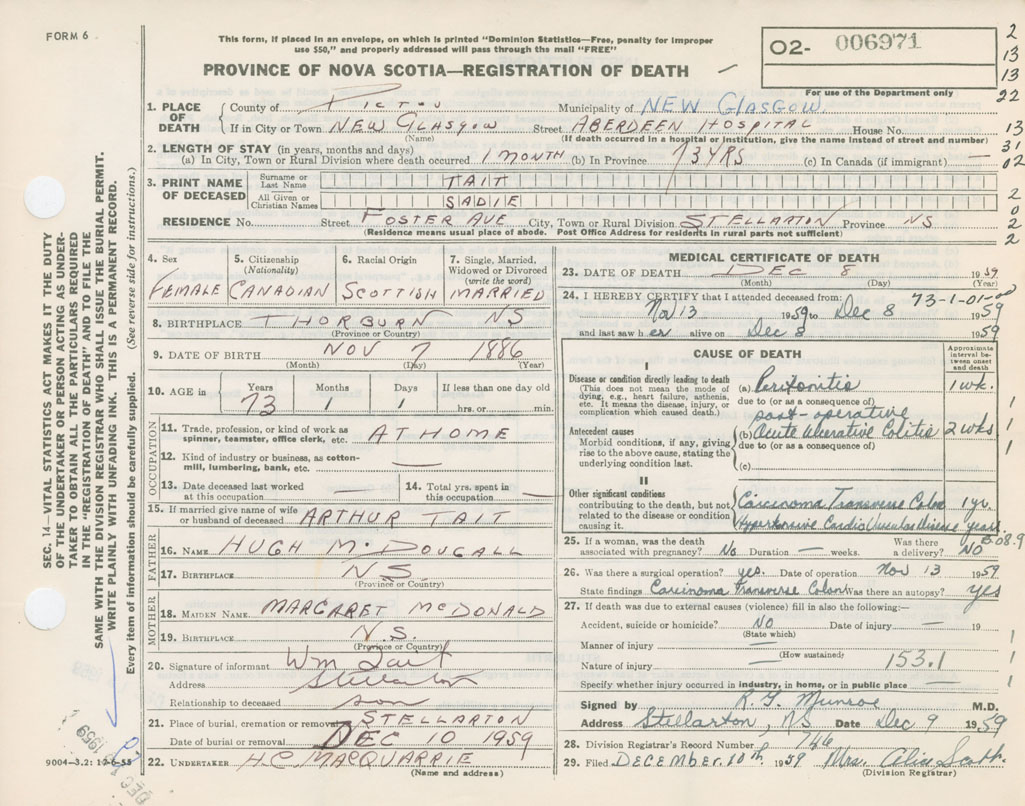 FORM 6
This form, if placed in an envelope, on which is printed "Dominion Statistics—Free, penalty for improper
use $50," and properly addressed will pass through the mail "FREE"
PROVINCE OF NOVA SCOTIA—REGISTRATION OF DEATH
02- 006971
For use of the Department only
2
13
13
22
13
31
02
2
0
2
2
1. PLACE OF DEATH
County of Pictou Municipality of NEW GLASGOW
If in City or Town NEW GLASGOW Street ABERDEEN HOSPITAL House No.
(Name) (If death occurred in a hospital or institution, give the name instead of street and number)
2. LENGTH OF STAY (in years, months and days)
(a) In City, Town or Rural Division where death occurred 1 MONTH (b) In Province 73 YRS (c) In Canada (if immigrant) —
3. PRINT NAME OF DECEASED
Surname or Last Name TAIT
All Given or Christian Names SADIE
RESIDENCE No. Street FOSTER AVE City, Town or Rural Division STELLARTON Province NS
(Residence means usual place of abode. Post Office Address for residents in rural parts not sufficient)
4. Sex
FEMALE
5. Citizenship
(Nationality)
CANADIAN
6. Racial Origin
SCOTTISH
7. Single, Married,
Widowed or Divorced
(write the word)
MARRIED
8. BIRTHPLACE THORBURN NS
(Province or Country)
9. DATE OF BIRTH NOV 7 1886
(Month) (Day) (Year)
10. AGE in Years Months Days If less than one day old
73 1 1 hrs. or min.
OCCUPATION
11. Trade, profession, or kind of work as
spinner, teamster, office clerk, etc. AT HOME
12. Kind of industry or business, as cotton-
mill, lumbering, bank, etc. —
13. Date deceased last worked
at this occupation —
14. Total yrs. spent in
this occupation —
15. If married give name of wife
or husband of deceased ARTHUR TAIT
FATHER
16. NAME HUGH McDOUGALL
17. BIRTHPLACE N.S.
(Province or Country)
MOTHER
18. MAIDEN NAME MARGARET McDONALD
19. BIRTHPLACE N.S.
(Province or Country)
20. Signature of informant Wm Tait
Address Stellarton
Relationship to deceased son
21. Place of burial, cremation or removal STELLARTON
Date of burial or removal DEC 10 1959
22. UNDERTAKER H.C. MACQUARRIE
(Name and address)
MEDICAL CERTIFICATE OF DEATH
23. DATE OF DEATH DEC 8 1959
(Month) (Day) (Year)
24. I HEREBY CERTIFY that I attended deceased from: 73-1-01-00
Nov 13 1959 to Dec 8 1959
and last saw her alive on Dec 8 1959
CAUSE OF DEATH
Approximate
interval be-
tween onset
and death
I
Disease or condition directly leading to death
(This does not mean the mode of
dying, e.g., heart failure, asthenia,
etc. It means the disease, injury, or
complication which caused death.)
(a) Peritonitis 1 wk.
due to (or as a consequence of) 1
post-operative
Antecedent causes
Morbid conditions, if any, giving
rise to the above cause, stating the
underlying condition last.
(b) Acute Ulcerative Colitis 2 wks 1
due to (or as a consequence of) 1
(c)
II
Other significant conditions
contributing to the death, but not
related to the disease or condition
causing it.
Carcinoma Transverse Colon 1 yr.
Hypertensive CardioVascular Disease years.
25. If a woman, was the death
associated with pregnancy? No Duration — weeks. Was there
a delivery? NO
26. Was there a surgical operation? yes. Date of operation Nov 13 1959
State findings Carcinoma Transverse Colon Was there an autopsy? Yes
27. If death was due to external causes (violence) fill in also the following:—
Accident, suicide or homicide? NO Date of injury — 19
(State which)
Manner of injury —
(How sustained)
Nature of injury — 153.1
Specify whether injury occurred in industry, in home, or in public place —
Signed by R. F. Munroe M.D.
Address Stellarton, NS Date Dec 9 1959
28. Division Registrar's Record Number 746
29. Filed DECEMBER 10th 1959 Mrs. Alice Scott
(Division Registrar)
SEC. 14—VITAL STATISTICS ACT MAKES IT THE DUTY
OF THE UNDERTAKER OR PERSON ACTING AS UNDER-
TAKER TO OBTAIN ALL THE PARTICULARS REQUIRED
IN THE "REGISTRATION OF DEATH" AND TO FILE THE
SAME WITH THE DIVISION REGISTRAR WHO SHALL ISSUE THE BURIAL PERMIT.
WRITE PLAINLY WITH UNFADING INK. THIS IS A PERMANENT RECORD.
Every item of information should be carefully supplied. (See reverse side for instructions.)
9004-3.2: 17-6-55